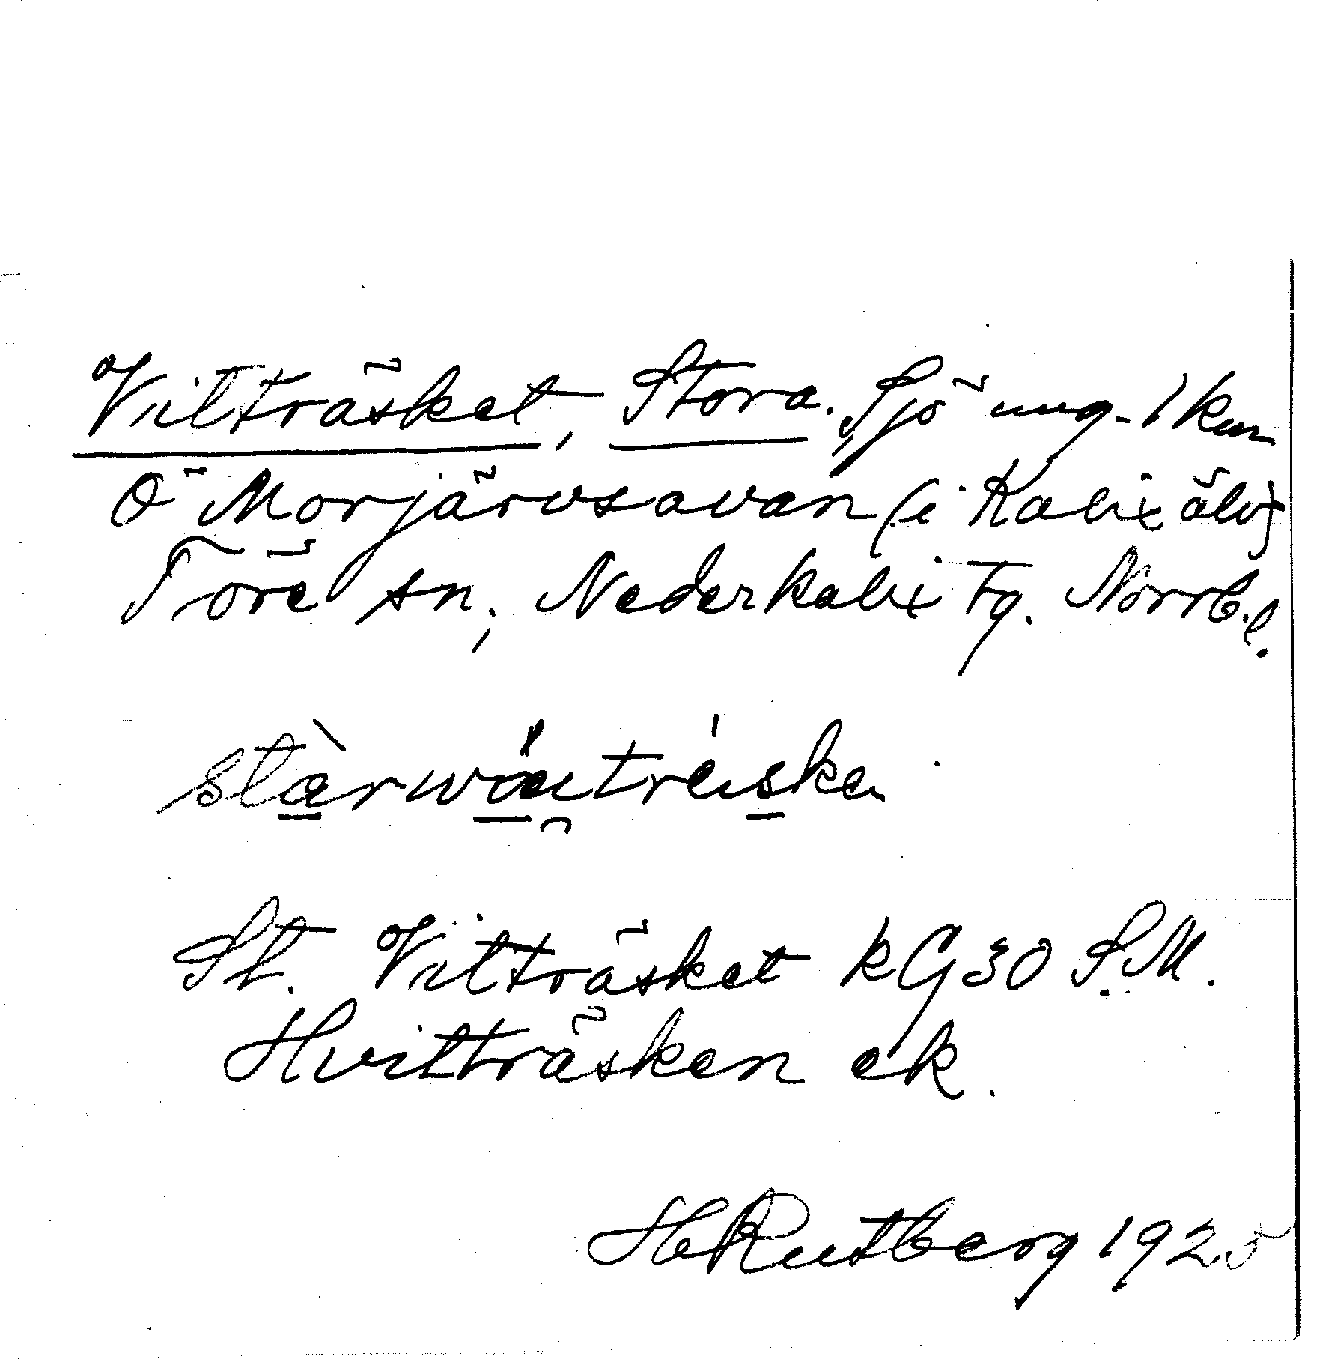 Vitträsket, Stora. Sjö ung. 1 km
Ö Morjärvsavan (i Kalix älv)
Töre sn, Nederkalix tg. Norrb. l.
St. Vitträsket KG30 S.M.
Hvitträsken ek.
H Rutberg 1925